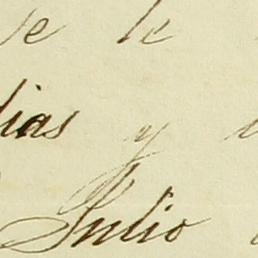 se le
dias y
Julio